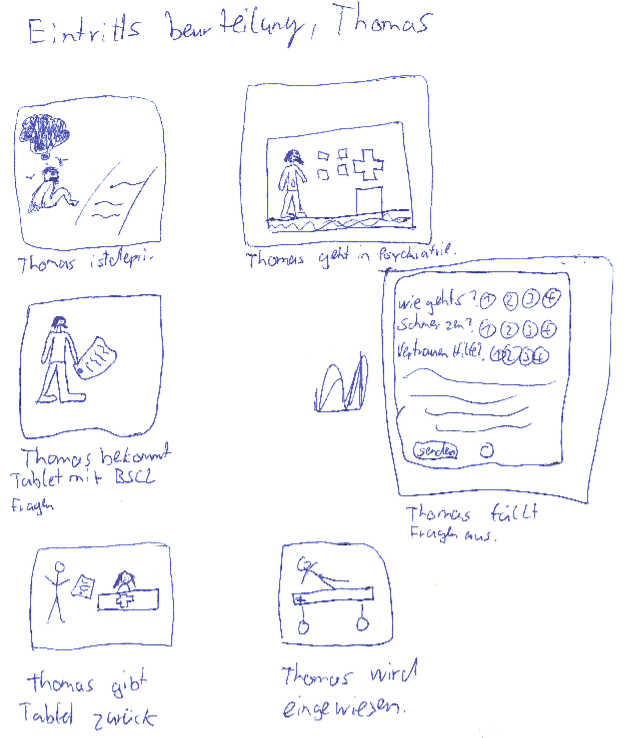 Eintritts beurteilung, Thomas
Thomas ist depri.
Thomas geht in Psychiatrie.
Thomas bekommt
Tablet mit BSCL
Fragen
wie gehts? 1 2 3 4
Schmerzen? 1 2 3 4
Vertrauen Hilfe? 1 2 3 4
senden
Thomas füllt
Fragen aus.
Thomas gibt
Tablet zurück
Thomas wird
eingewiesen.